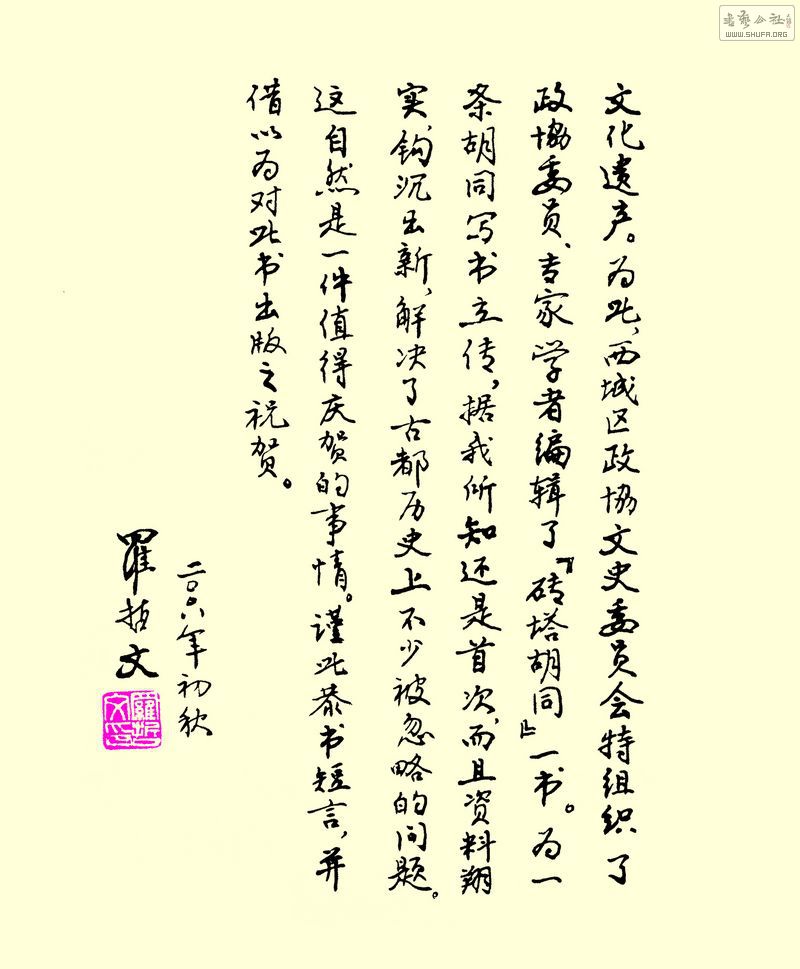 文化遗产。为此，西城区政協文史委员会特组织了
政協委员、专家学者编辑了『砖塔胡同』一书。为一
条胡同写书立传，据我所知还是首次，而且资料翔
实，钩沉出新，解决了古都历史上不少被忽略的问题。
这自然是一件值得庆贺的事情。谨此恭书短言，并
借以为对此书出版之祝贺。
二〇〇六年初秋
羅哲文
羅哲文印
書藝公社
WWW.SHUFA.ORG